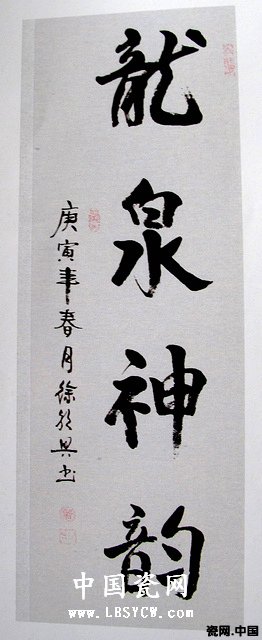 龍泉神韵
庚寅年春月徐朝兴书
中国瓷网
www.LBSYCW.com
瓷网.中国